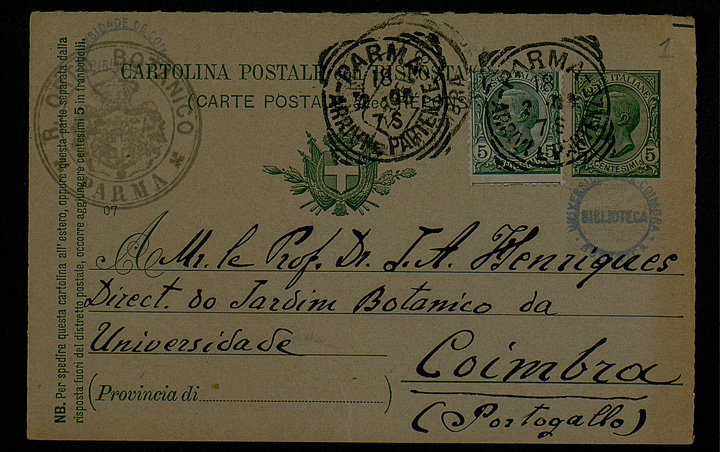 CARTOLINA POSTALE DI RISPOSTA
(CARTE POSTALE
R. ORTO BOTANICO
PARMA
PARMA
ARRIVI E PARTENZE
18
7 S
PARMA
18
7 S
5
5
5
5
POSTE ITALIANE
CENTESIMI
UNIVERSIDADE DE COIMBRA
BIBLIOTECA
1
07
A Mr. le Prof. Dr. J. A. Henriques
Direct. do Jardim Botanico da
Universidade
Coimbra
(Provincia di
(Portogallo)
NB. Per spedire questa cartolina all'estero, oppure questa parte separata dalla
risposta fuori del distretto postale, occorre aggiungere centesimi 5 in francobolli.